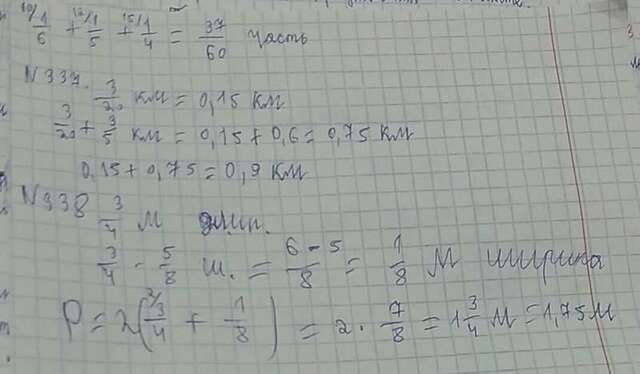 10/1/6 + 12/1/5 + 15/1/4 = 37/60 часть
N 337. 3/20 км = 0,15 км
3/20 + 3/5 км = 0,15 + 0,6 = 0,75 км
0,15 + 0,75 = 0,9 км
N 338 3/4 м длин.
3/4 - 5/8 ш. = 6-5/8 = 1/8 м ширина
P = 2(2/3/4 + 1/8) = 2 · 7/8 = 1 3/4 м = 1,75 м